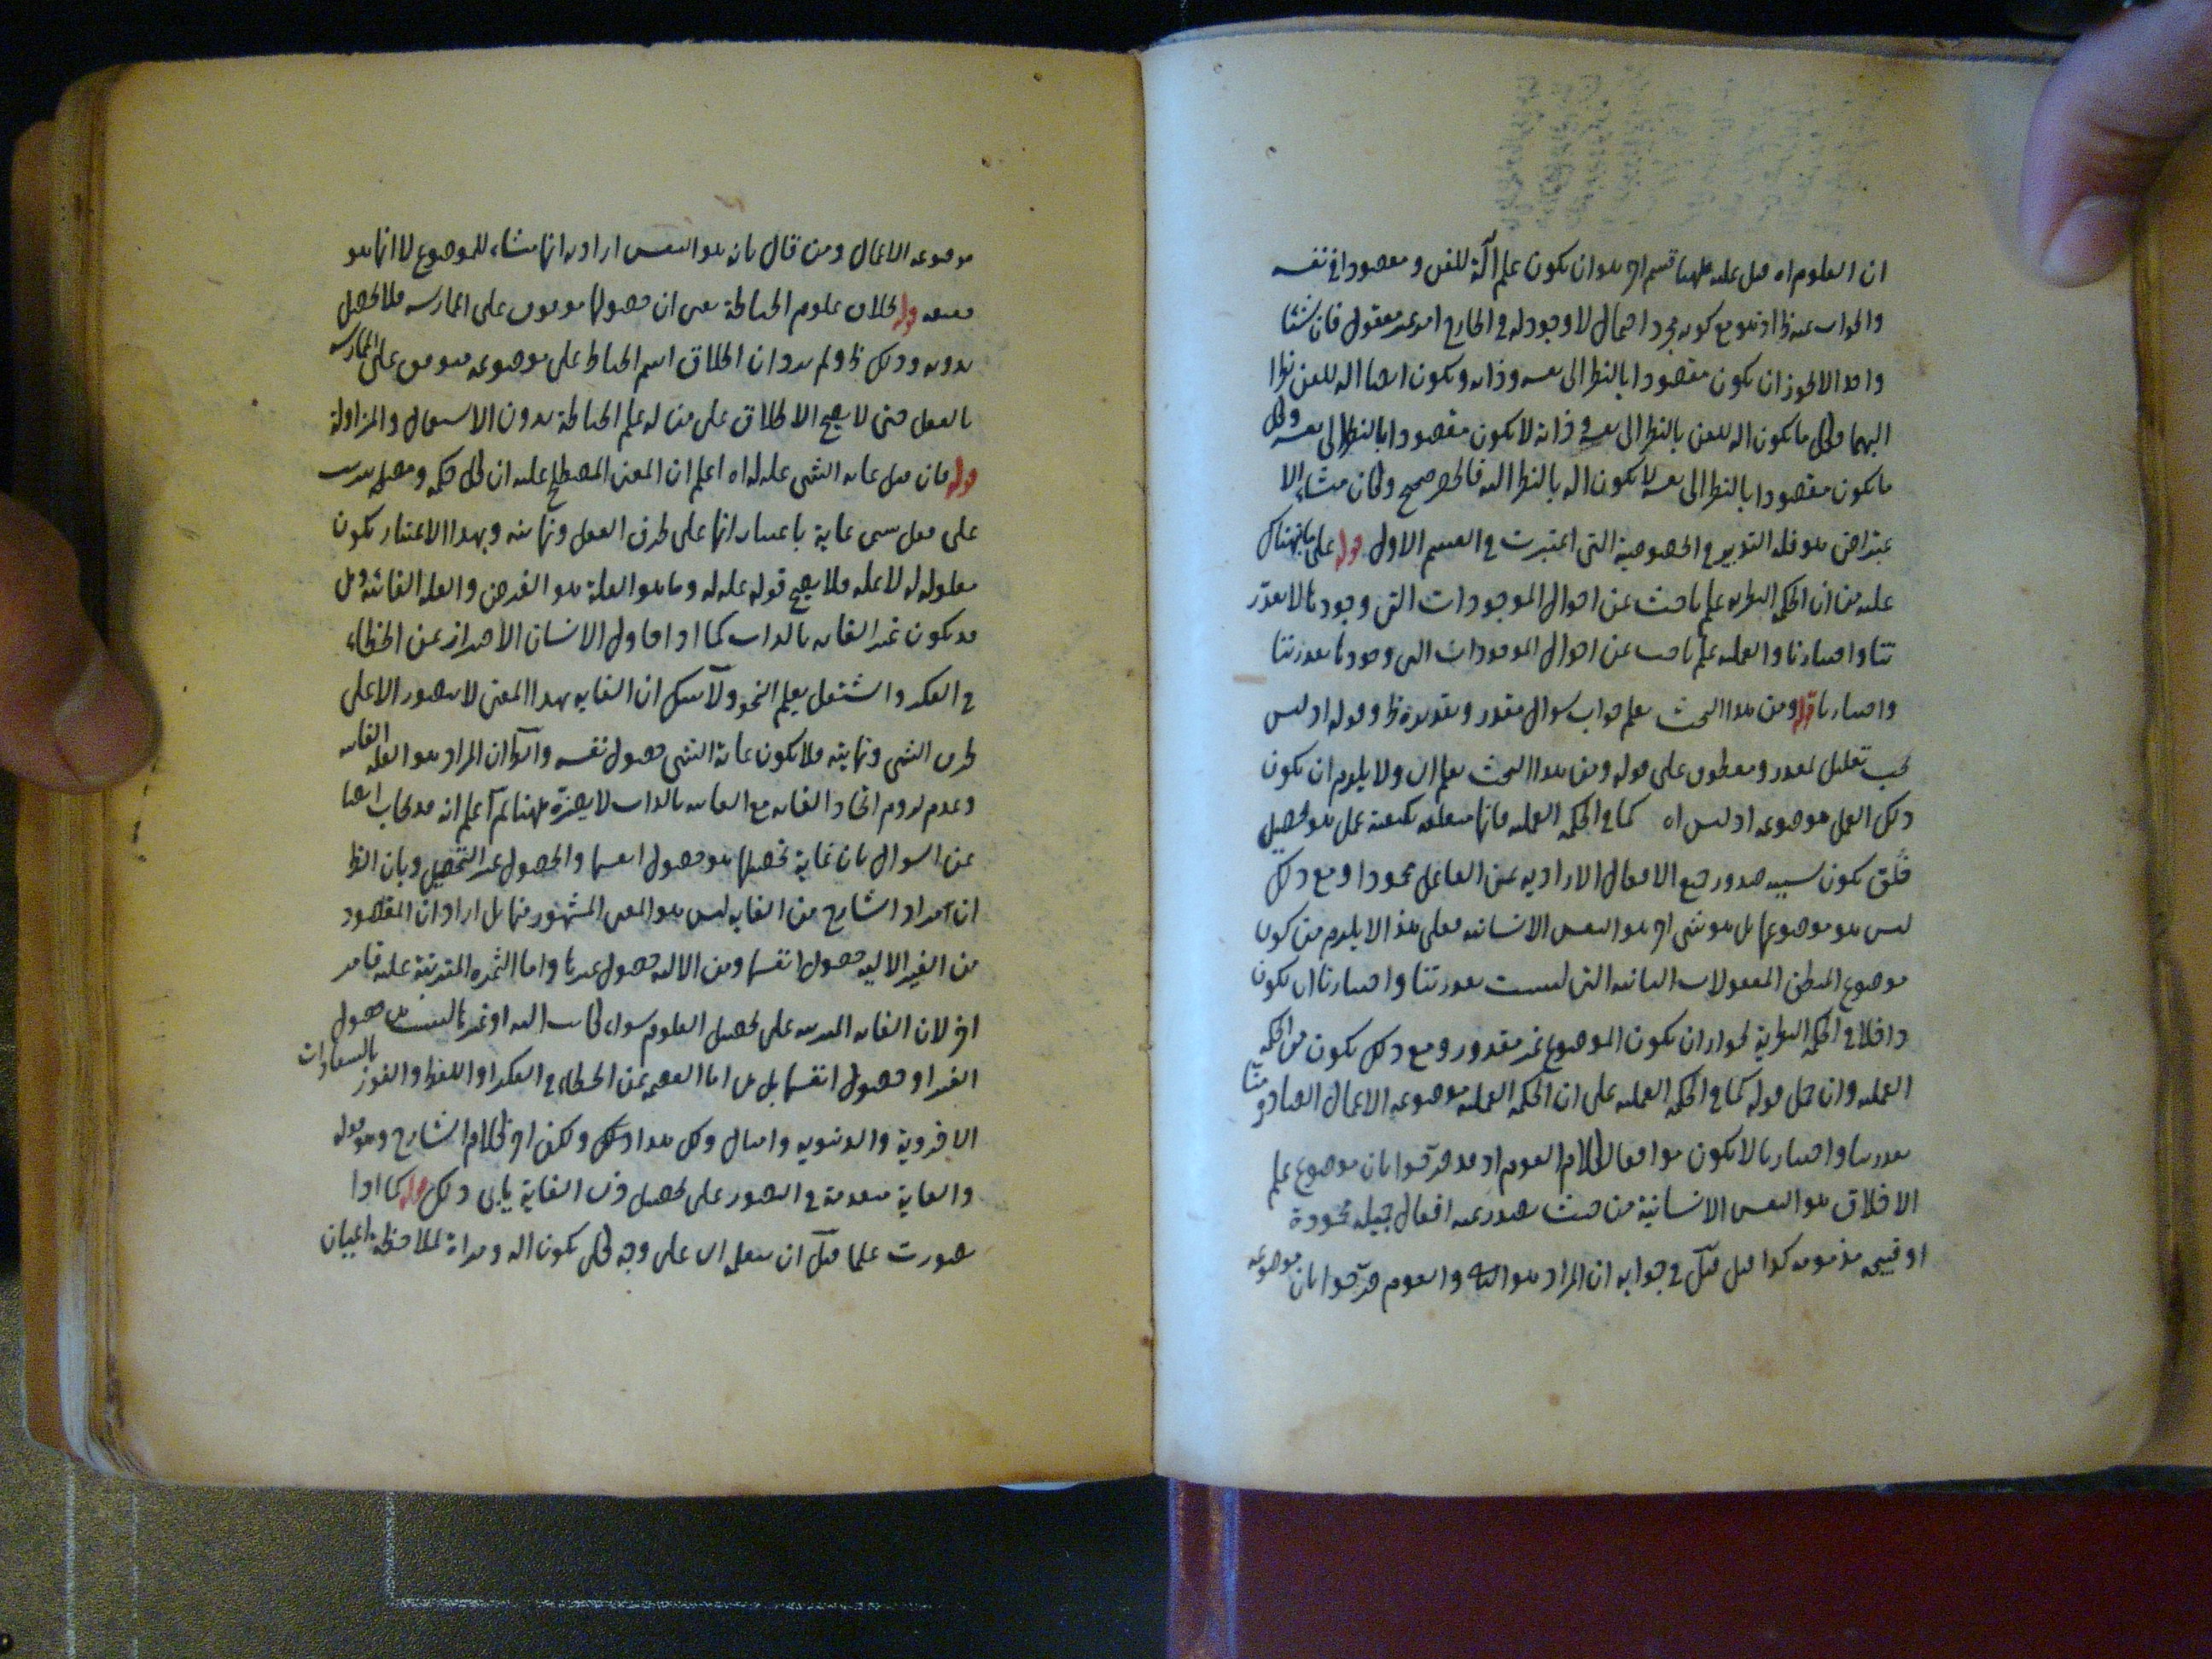 ان العلوم اه قيل عليه ههنا قسم اخر هو ان يكون علم آلة للفن و مقصودا في نفسه
والجواب عنه ظ اذ هو مع كونه مجرد احتمال لا وجود له في الخارج امر غير معقول فان شيئا
واحدا لا يجوز ان يكون مقصودا بالنظر الى نفسه وذاته ويكون ايضا اله للفن نظرا
اليهما فكل ما يكون اله للفن بالنظر الى نفسه و ذاته لا يكون مقصودا بالنظر الى نفسه وكل
ما يكون مقصودا بالنظر الى نفسه لا يكون اله بالنظر اليه فالحصر صحيح وكان منشاء الا
عتراض هو قله التدبر في الخصوصية التي اعتبرت في القسم الاول قوله على ما
عليه من ان الحكمة النظرية علم باحث عن احوال الموجودات التي وجودها لا بقدر
تنا واختيارنا والعمليه علم باحث عن احوال الموجودات التي وجودها بقدرتنا
واختيارنا قوله ومن هذا البحث يعلم جواب سوال مقدر وتقديره ظ وقوله اذ ليس
يجب تعليل لمقدر ومعطوف على قوله ومن هذا البحث يعلم اى ولا يلزم ان يكون
ذلك العمل موضوعه اذ ليس اه كما في الحكمة العمليه فانها متعلقه بكيفية عمل هو تحصيل
خلق يكون سببه صدور جميع الافعال الاراديه عن الفاعل محمودا ومع ذلك
ليس هو موضوعها بل هو شى اخر هو النفس الانسانيه فعلى هذا لا يلزم من كون
موضوع المنطق المعقولات الثانيه التي ليست بقدرتنا واختيارنا ان يكون
داخلا في الحكمة النظرية لجواز ان يكون الموضوع غير مقدور ومع ذلك يكون من الحكمة
العمليه وان حمل قوله كما في الحكمة العمليه على ان الحكمة العمليه موضوعه الاعمال الصادرة منا
بقدرتنا واختيارنا لا يكون موافقا لكلام القوم اذ قد صرحوا بان موضوع علم
الاخلاق هو النفس الانسانية من حيث يصدر عنه افعال جميله محمودة
او قبيحه مذمومه كذا قيل قيل في جوابه ان المراد هو والقوم صرحوا بان موضوعه
موضوعه الاعمال ومن قال بانه هو النفس اراد به انها منشاء للموضوع لا انها هو
نفسه قوله بخلاف علوم الخياطة يعنى ان حصولها موقوف على الممارسه فلا تحصل
بدونه وذلك ظ ولم يرد ان اطلاق اسم الخياط على موضوعه متوقف على الممارسه
بالفعل حتى لا يصح الاطلاق على من له علم الخياطة بدون الاستعمال والمزاولة
قوله فان قيل غايه الشى عله له اه اعلم ان المعنى المصطلح عليه ان كل حكمة ومصلحة تترتب
على فعل تسمى غاية باعتبار انها على طرف الفعل ونهايته وبهذا الاعتبار يكون
معلوله له لا عله فلا يصح قوله عله له وما هو العلة هو الغرض والعله الغائية وهى
قد يكون غير الغايه بالذات كما اذا حاول الانسان الاحتراز عن الخطاء
في الفكر واشتغل بعلم النحو ولا شك ان الغايه بهذا المعنى لا يتصور الا على
طرف الشى ونهايته فلا يكون غاية الشى حصول نفسه والجواب ان المراد هو العله الغائيه
وعدم لزوم اتحاد الغايه مع الغائيه بالذات لا يضره ههنا ثم اعلم انه قد يجاب ايضا
عن السوال بان غاية تحصيلها هو حصول انفسها والحصول غير التحصيل وبان الظ
ان مراد الشارح من الغايه ليس هو المعنى المشهور منها بل اراد ان المقصود
من الغير الاليه حصول انفسها ومن الاليه حصول غيرها واما الثمره المترتبة عليه فامر
اخر لان الغايه المترتبه على تحصيل العلوم سواء كانت اليه او غيرها ليست هى حصول
الغير او حصول انفسها بل هى اما العصمة عن الخطاء في الفكر او اللفظ والفوز بالسعادات
الاخروية والدنيويه وامثال ذلك هذا ولكن اخر كلام الشارح وهو قوله
والغاية متقدمة في التصور على تحصيل ذى الغاية يابى ذلك قوله كما اذا
تصورت علما قيل ان تعلمه اى على وجه كلى يكون اله ومراة لملاحظة اعيان